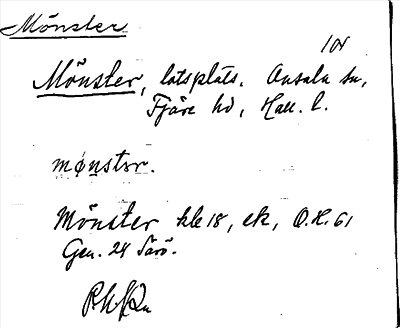 Mönster
Mönster, lotsplats. Onsala sn,
Fjäre hd, Hall. l.
mønstər.
Mönster kbl 18, ek, O.K. 61
Gen. 24 Särö.